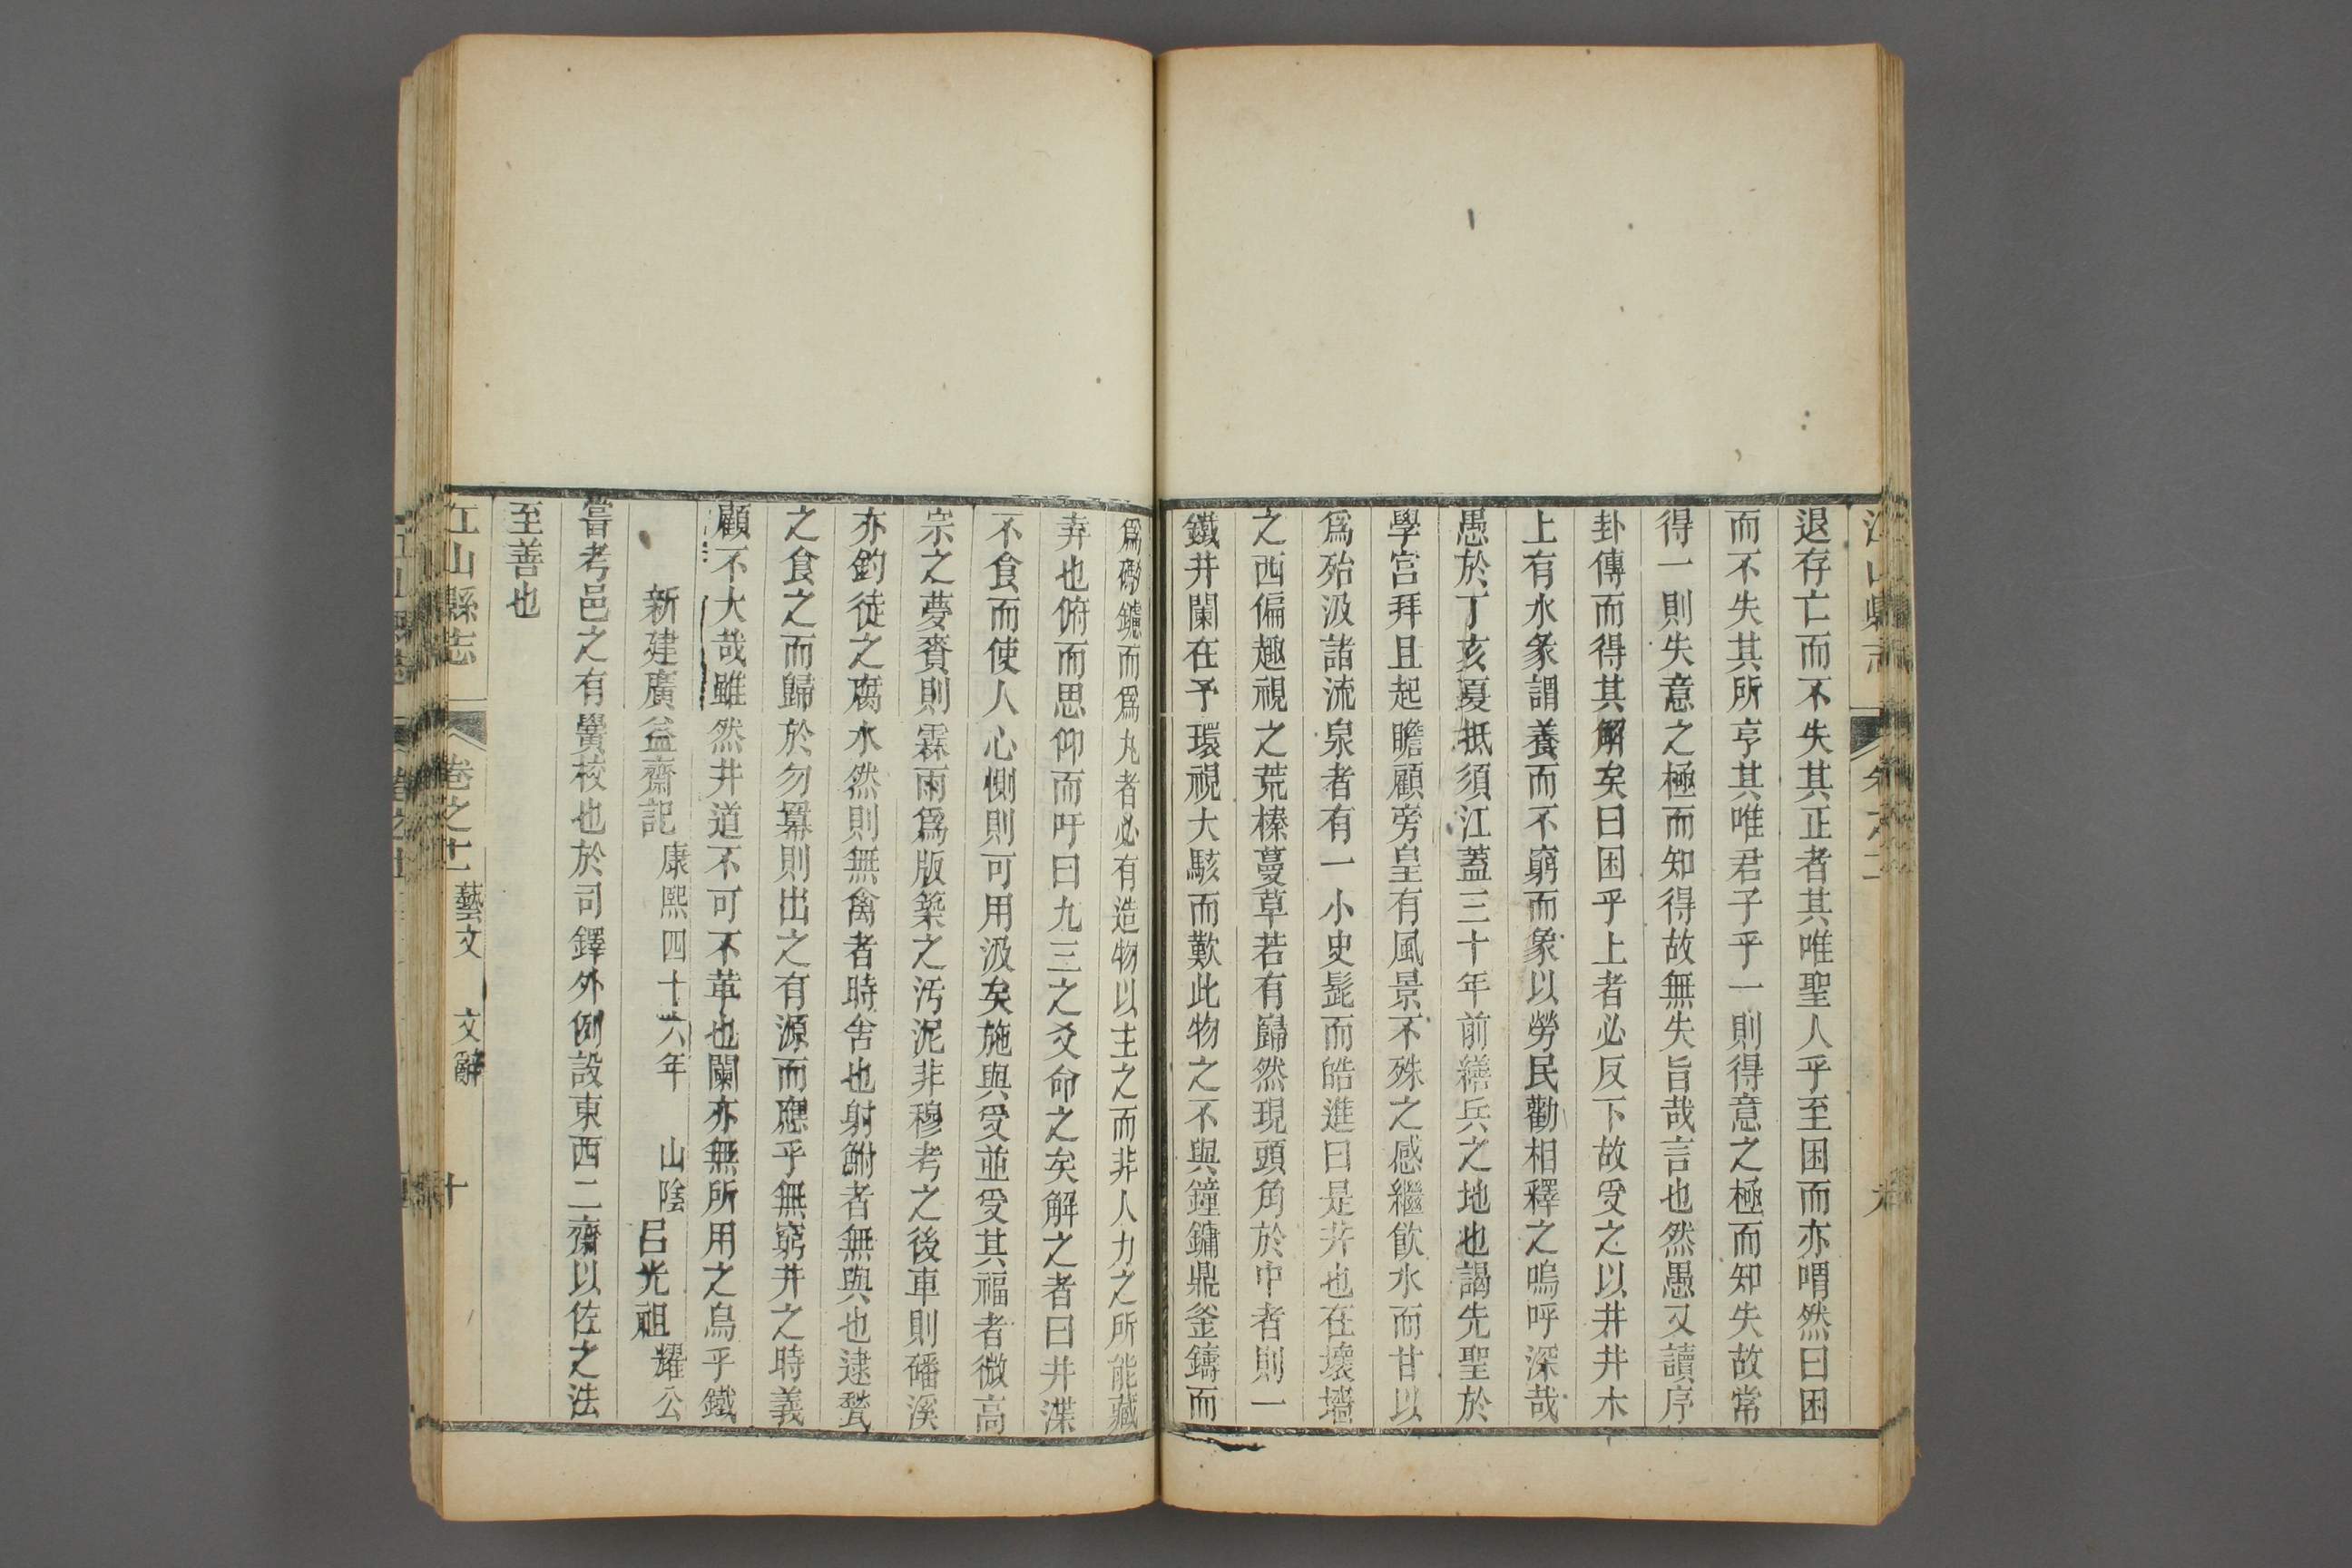 退存亡而不失其正者其唯聖人乎至困而亦喟然曰困
而不失其所亨其唯君子乎一則得意之極而知失故常
得一則失意之極而知得故無失旨哉言也然愚又讀序
卦傳而得其解矣曰困乎上者必反下故受之以井井木
上有水象謂養而不窮而象以勞民勸相釋之嗚呼深哉
愚於丁亥夏抵須江蓋三十年前繕兵之地也謁先聖於
學宮拜且起瞻顧旁皇有風景不殊之感繼飲水而甘以
為殆汲諸流泉者有一小史髭而皓進曰是井也在壞墻
之西偏趣視之荒榛蔓草若有巋然現頭角於中者則一
鐵井闌在予環視大駭而歎此物之不與鐘鏞鼎釜鑄而
為礮鑣而為丸者必有造物以主之而非人力之所能藏
弆也俯而思仰而吁曰九三之爻命之矣解之者曰井渫
不食而使人心惻則可用汲矣施與受並受其福者微高
宗之夢賚則霖雨為版築之汚泥非穆考之後車則磻溪
亦釣徒之腐水然則無禽者時舍也射鮒者無與也逮甃
之食之而歸於勿羃則出之有源而應乎無窮井之時義
顧不大哉雖然井道不可不革也闌亦無所用之烏乎鐵
新建廣益齋記 康熙四十六年 山陰呂光祖耀公
嘗考邑之有黌校也於司鐸外例設東西二齋以佐之法
至善也
江山縣志 卷之十一 藝文 文辭 十